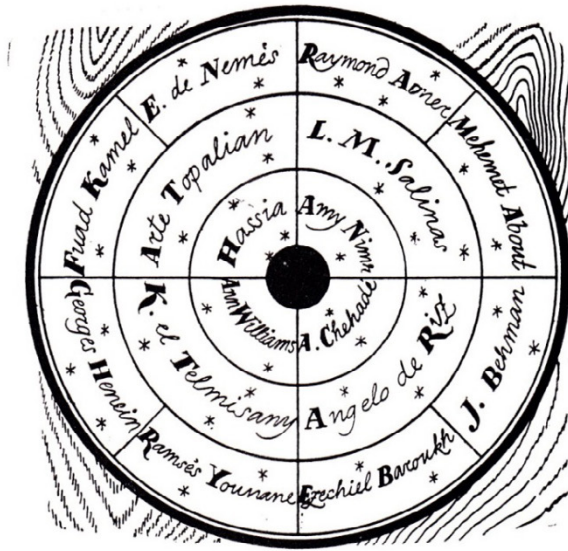 E. de Nemès
Raymond Abner
Mehemet About
J. Behman
Ezechiel Baroukh
Ramsès Younane
Georges Henein
Fuad Kamel
Arte Topalian
L. M. Salinas
Angelo de Riz
K. el Telmisany
Hassia
Amy Nimr
A. Chehadé
Ann Williams